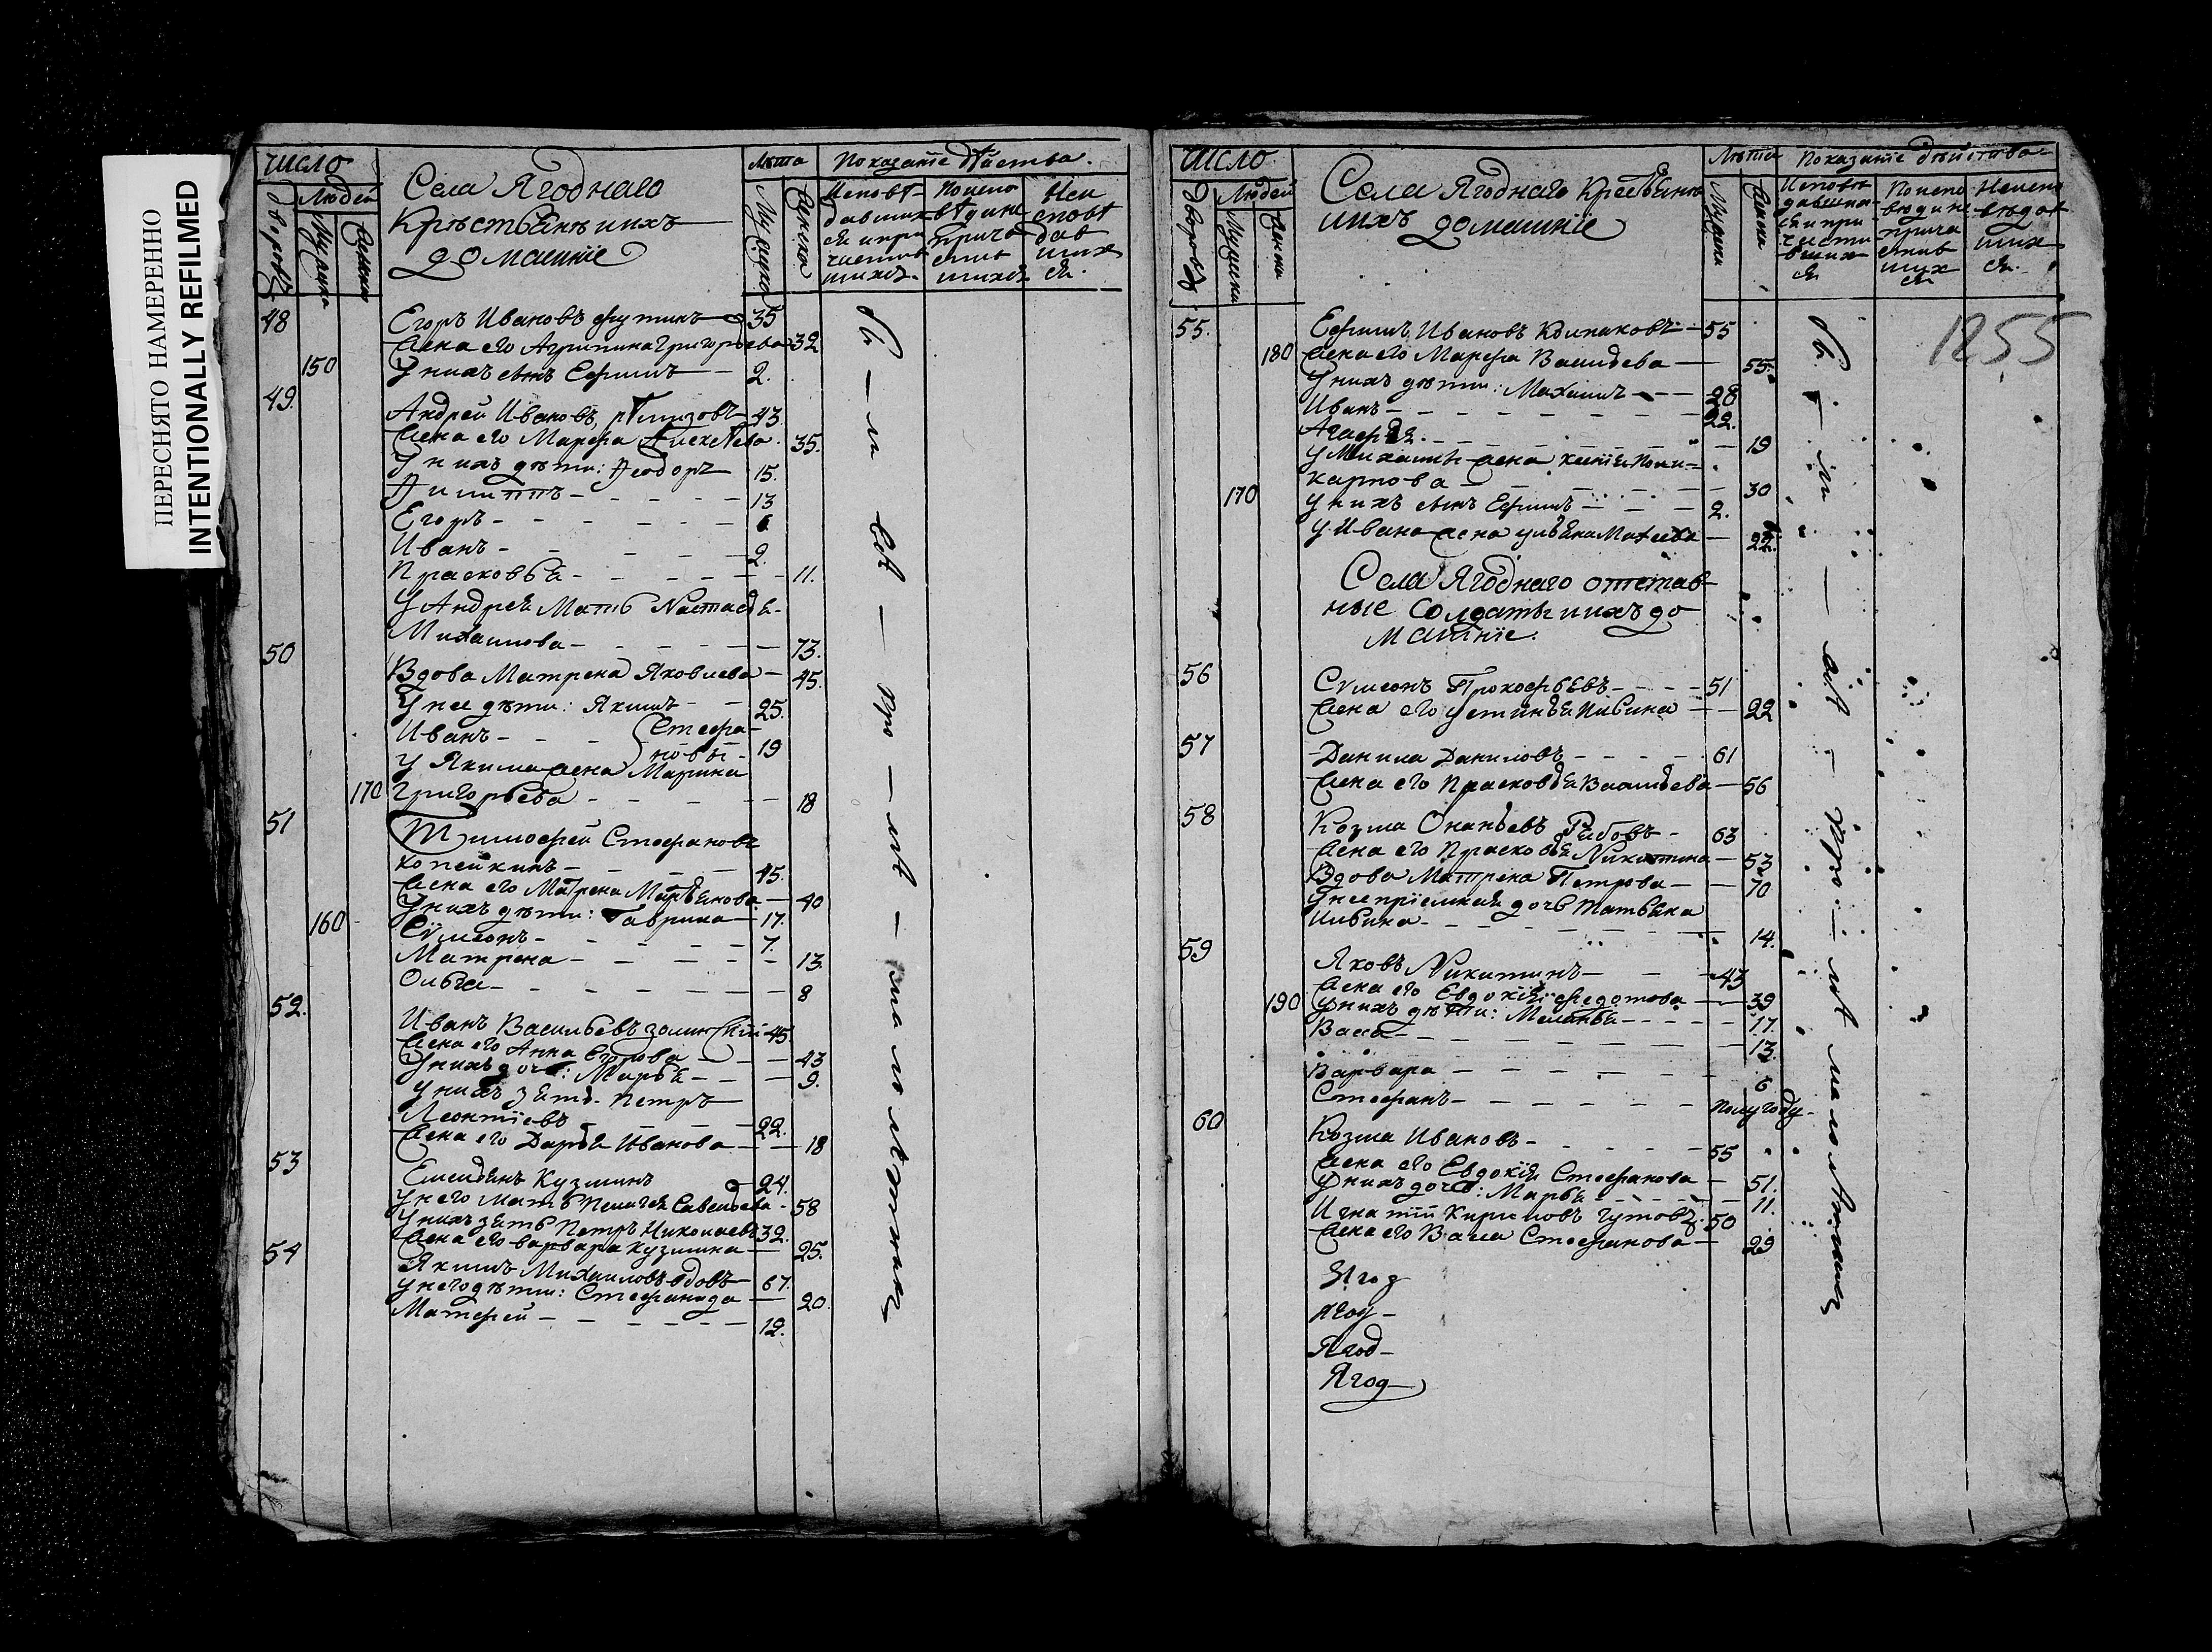 ПЕРЕСНЯТО НАМЕРЕННО
INTENTIONALLY REFILMED
Число
Дворовъ
Людей
Мужска
Женска
Села Ягоднаго
Крѣстьянѣ ихъ
домашніе
Лѣта
Мужска
Женска
Показаніе дѣйства.
48
Егоръ Ивановъ 35
Жена его Агрипина Григорьева 32
150 У нихъ сынъ Ефимъ 2.
49.
Андрей Ивановъ 43
Жена его Марфа Алексѣева 35.
У нихъ дѣти: Ѳеодоръ 15.
Филиппъ 13
Егоръ
Иванъ 2.
Прасковья 11.
У Андрея мать Настасья
Михаилова 73.
50
Вдова Матрена Яковлева 45.
У нее дѣти: Якимъ 25.
Иванъ Стефа-
новы 19
У Якима жена Марина
170 Григорьева 18
51
Тимофей Стефановъ
Копейкинъ 45.
Жена его Матрена Мартьянова 40
160 У нихъ дѣти: Гаврила 17.
Сѵмеонъ 7.
Матрена 13.
Ольга 8
52.
Иванъ Васильевъ 45.
Жена его Анна Егорова 43
У нихъ дочь: Марья 9.
У нихъ зять Петръ
Леонтіевъ 22.
Жена его Дарья Иванова 18
53
Емельянъ Кузминъ 24.
У него мать Пелагея Савельева 58
У нихъ зять Петръ Николаевъ 32.
Жена его Варвара Кузмина 25.
54
Якимъ Михаиловъ вдовъ 67.
У него дѣти: Стефанида 20.
Матфей 12.
Число
Дворовъ
Людей
Мужска
Женска
Села Ягоднаго Крестьяне
ихъ домашніе
Лѣта
Показаніе дѣйства
1255
55.
Ефимъ Ивановъ Колпаковъ 55
180 Жена его Марфа Васильева 55.
У нихъ дѣти: Михаилъ 28
Иванъ 22.
Агафья 19
У Михаилы жена Ксенія Поли-
карпова 30
170 У нихъ сынъ Ефимъ 2.
У Ивана жена Ульяна 22.
Села Ягоднаго отстав-
ные Солдаты ихъ до
машніе.
56
Сѵмеонъ Прокофьевъ 51
Жена его Устинья Ильина 22
57
Данила Даниловъ 61
Жена его Прасковья Васильева 56
58
Козма Онаньевъ Рыбовъ 63
Жена его Прасковья Никитина 53
Вдова Матрена Петрова 70
У нее пріемная дочь Татьяна
Ильина 14.
59
Яковъ Никитинъ 43
Жена его Евдокія Федотова 39
190 У нихъ дѣти: Меланья 17.
Васа 13.
Варвара 6
Стефанъ полугоду
60
Козма Ивановъ 55
Жена его Евдокія Стефанова 51.
У нихъ дочь: Марья 11.
Игнатій Кириловъ Гутовъ 50
Жена его Васа Стефанова 29
Ягод
Ягод
Ягод
Ягод